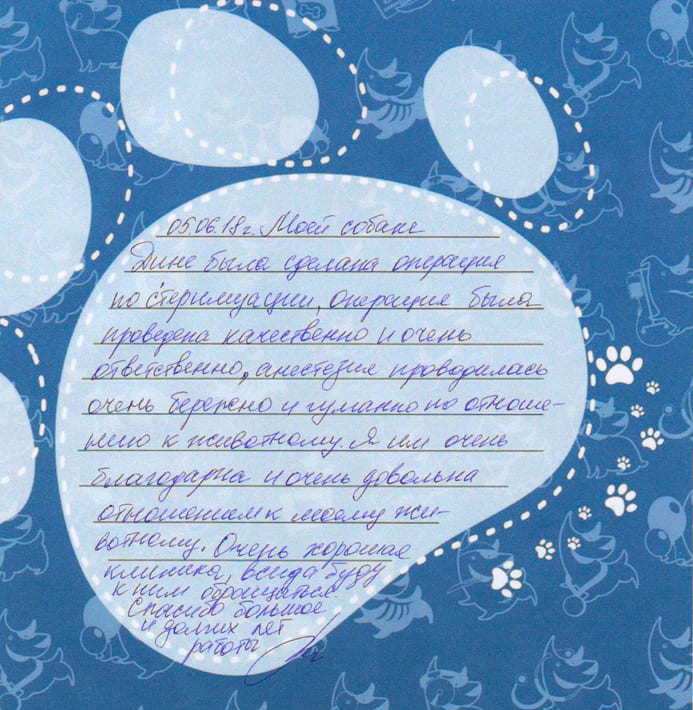 05.06.18г. Моей собаке
Дине была сделана операция
по стерилизации, операция была
проведена качественно и очень
ответственно, анестезия проводилась
очень бережно и гуманно по отноше-
нию к животному. Я им очень
благодарна и очень довольна
отношением к моему жи-
вотному. Очень хорошая
клиника, всегда буду
к ним обращаться.
Спасибо большое
и долгих лет
работы